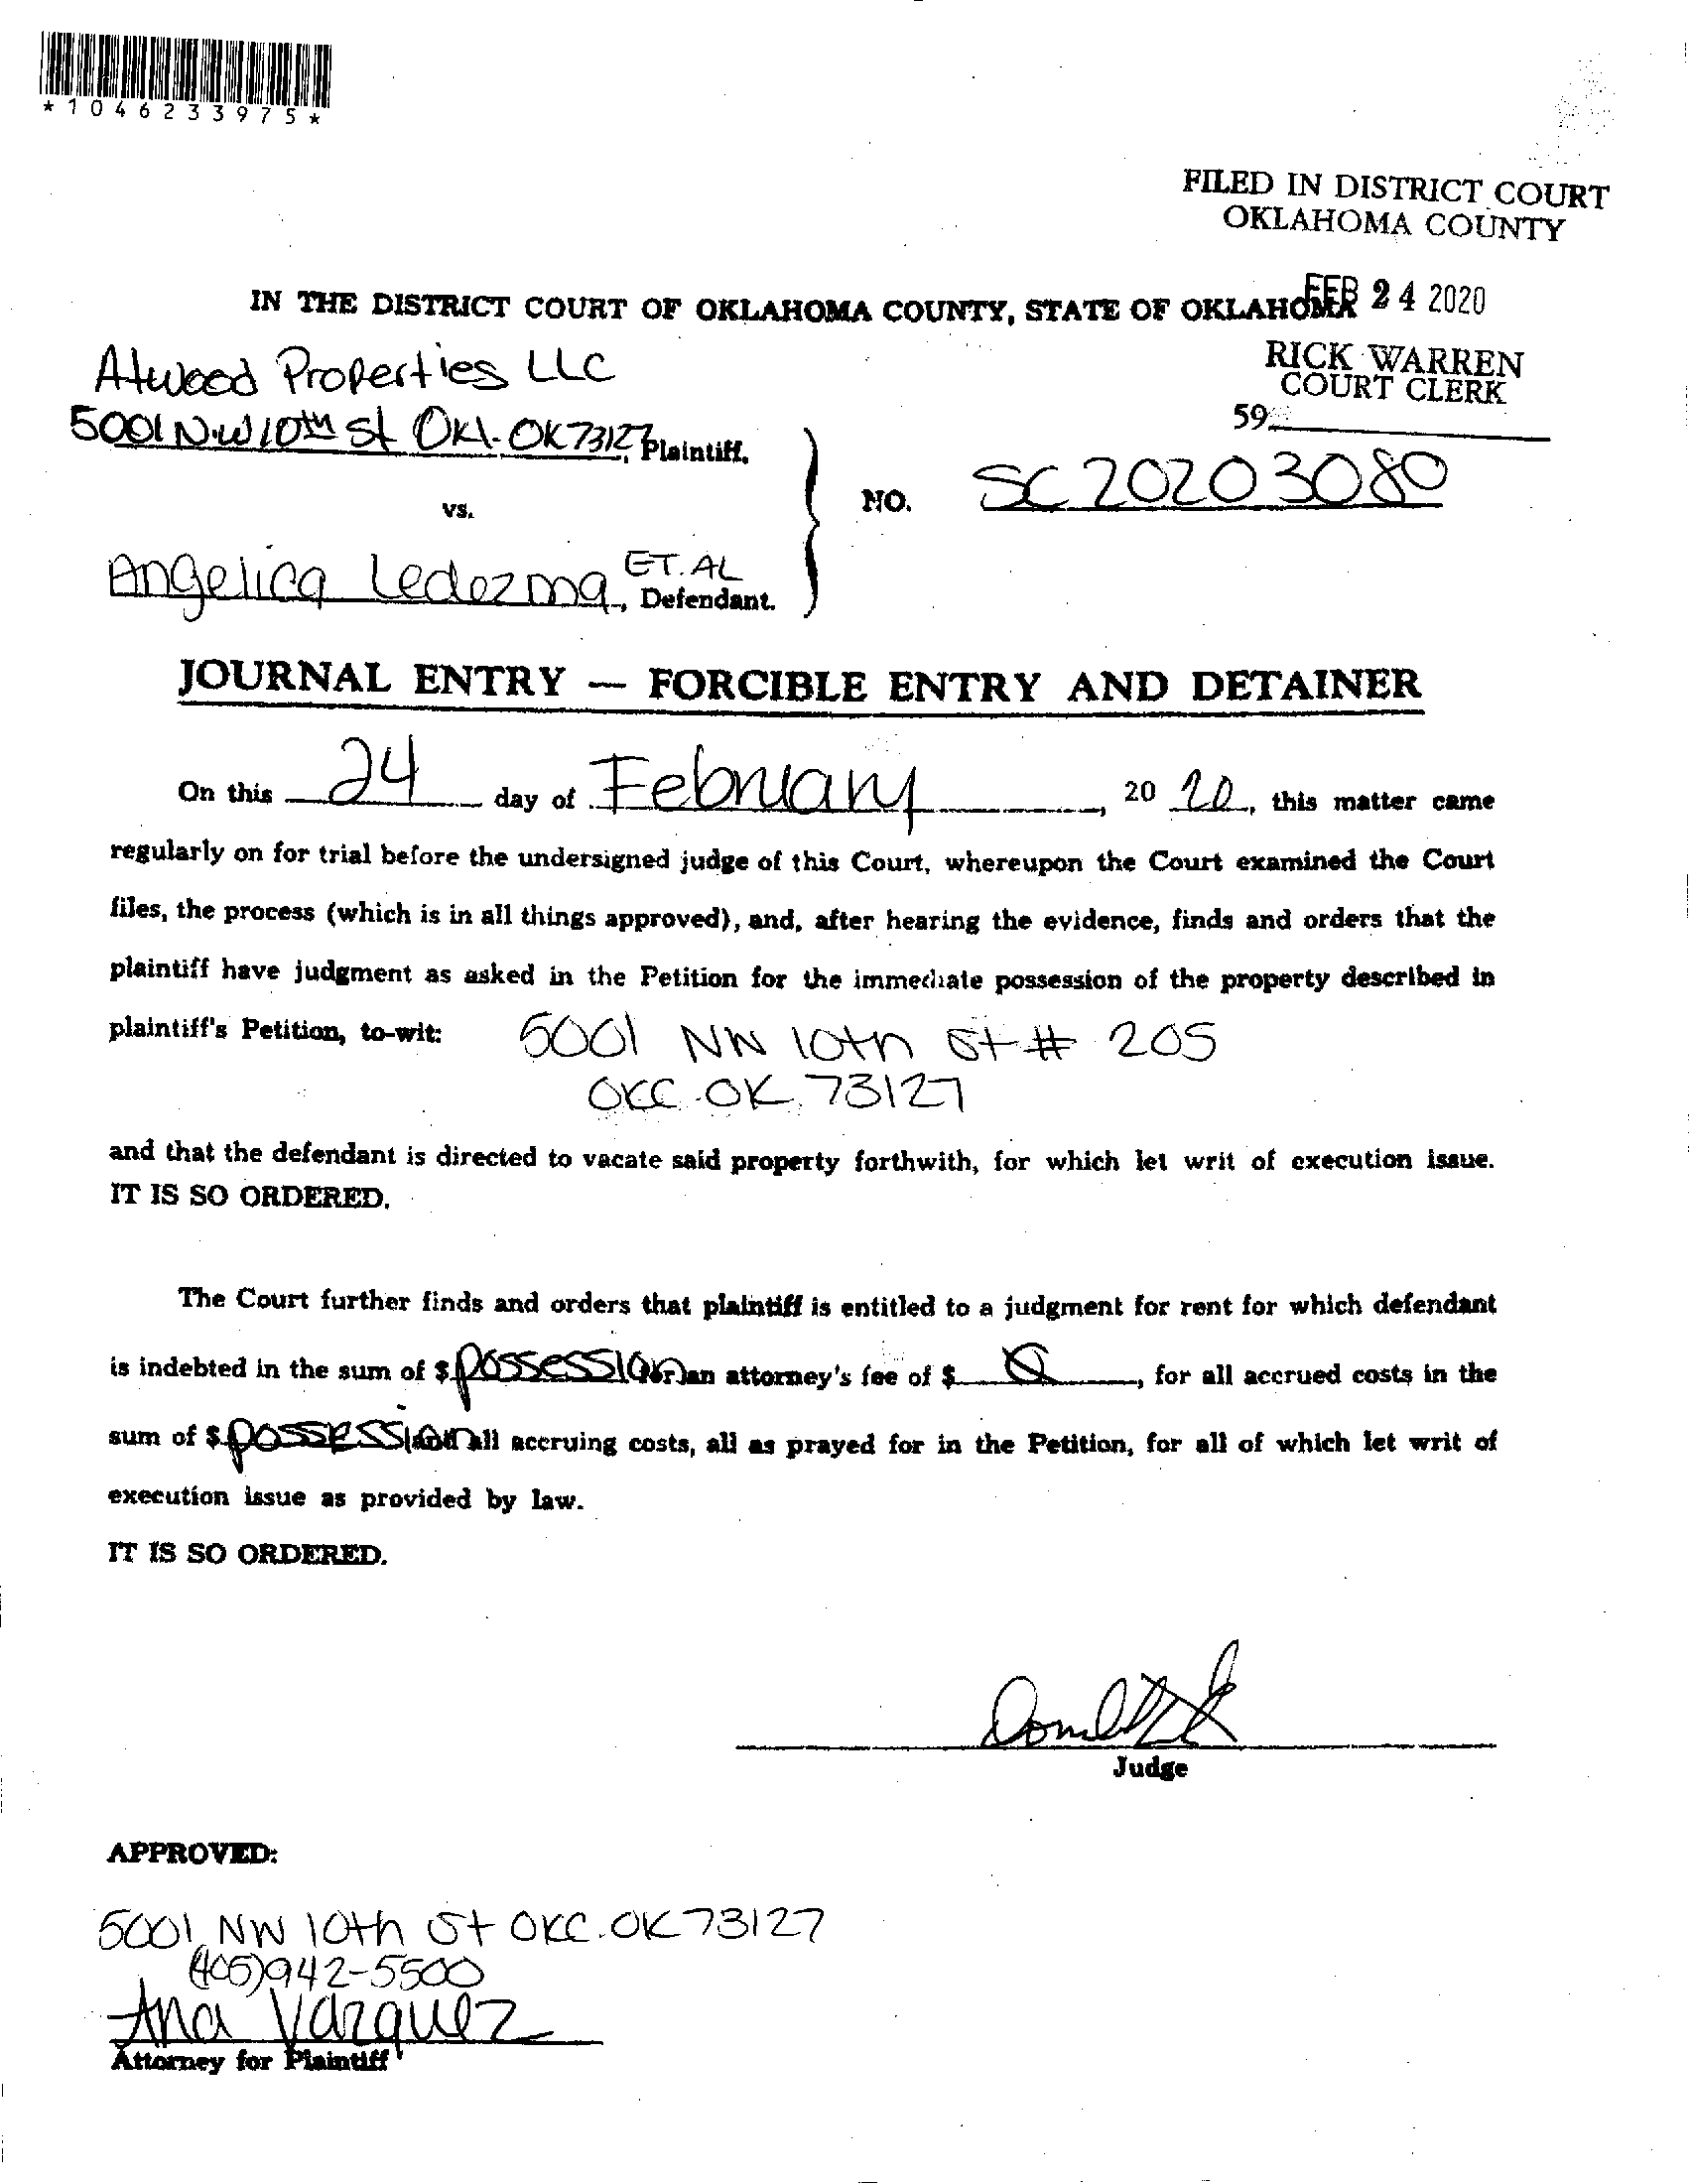 *1046233975*
FILED IN DISTRICT COURT
OKLAHOMA COUNTY
FEB 24 2020
IN THE DISTRICT COURT OF OKLAHOMA COUNTY, STATE OF OKLAHOMA
RICK WARREN
COURT CLERK
59
Atwood Properties LLC
5001 N.W 10th St Okl. OK 73127, Plaintiff,
vs.
NO. SC 2020 3080
Angelica Ledezma, ET. AL
Defendant.
JOURNAL ENTRY — FORCIBLE ENTRY AND DETAINER
On this 24 day of February, 20 20, this matter came
regularly on for trial before the undersigned judge of this Court, whereupon the Court examined the Court
files, the process (which is in all things approved), and, after hearing the evidence, finds and orders that the
plaintiff have judgment as asked in the Petition for the immediate possession of the property described in
plaintiff's Petition, to-wit: 5001 NW 10th St # 205
OKC. OK, 73127
and that the defendant is directed to vacate said property forthwith, for which let writ of execution issue.
IT IS SO ORDERED.
The Court further finds and orders that plaintiff is entitled to a judgment for rent for which defendant
is indebted in the sum of $ possession for an attorney's fee of $ , for all accrued costs in the
sum of $ possession and all accruing costs, all as prayed for in the Petition, for all of which let writ of
execution issue as provided by law.
IT IS SO ORDERED.
Judge
APPROVED:
5001 NW 10th St OKC. OK 73127
(405) 942-5500
Ana Vazquez
Attorney for Plaintiff